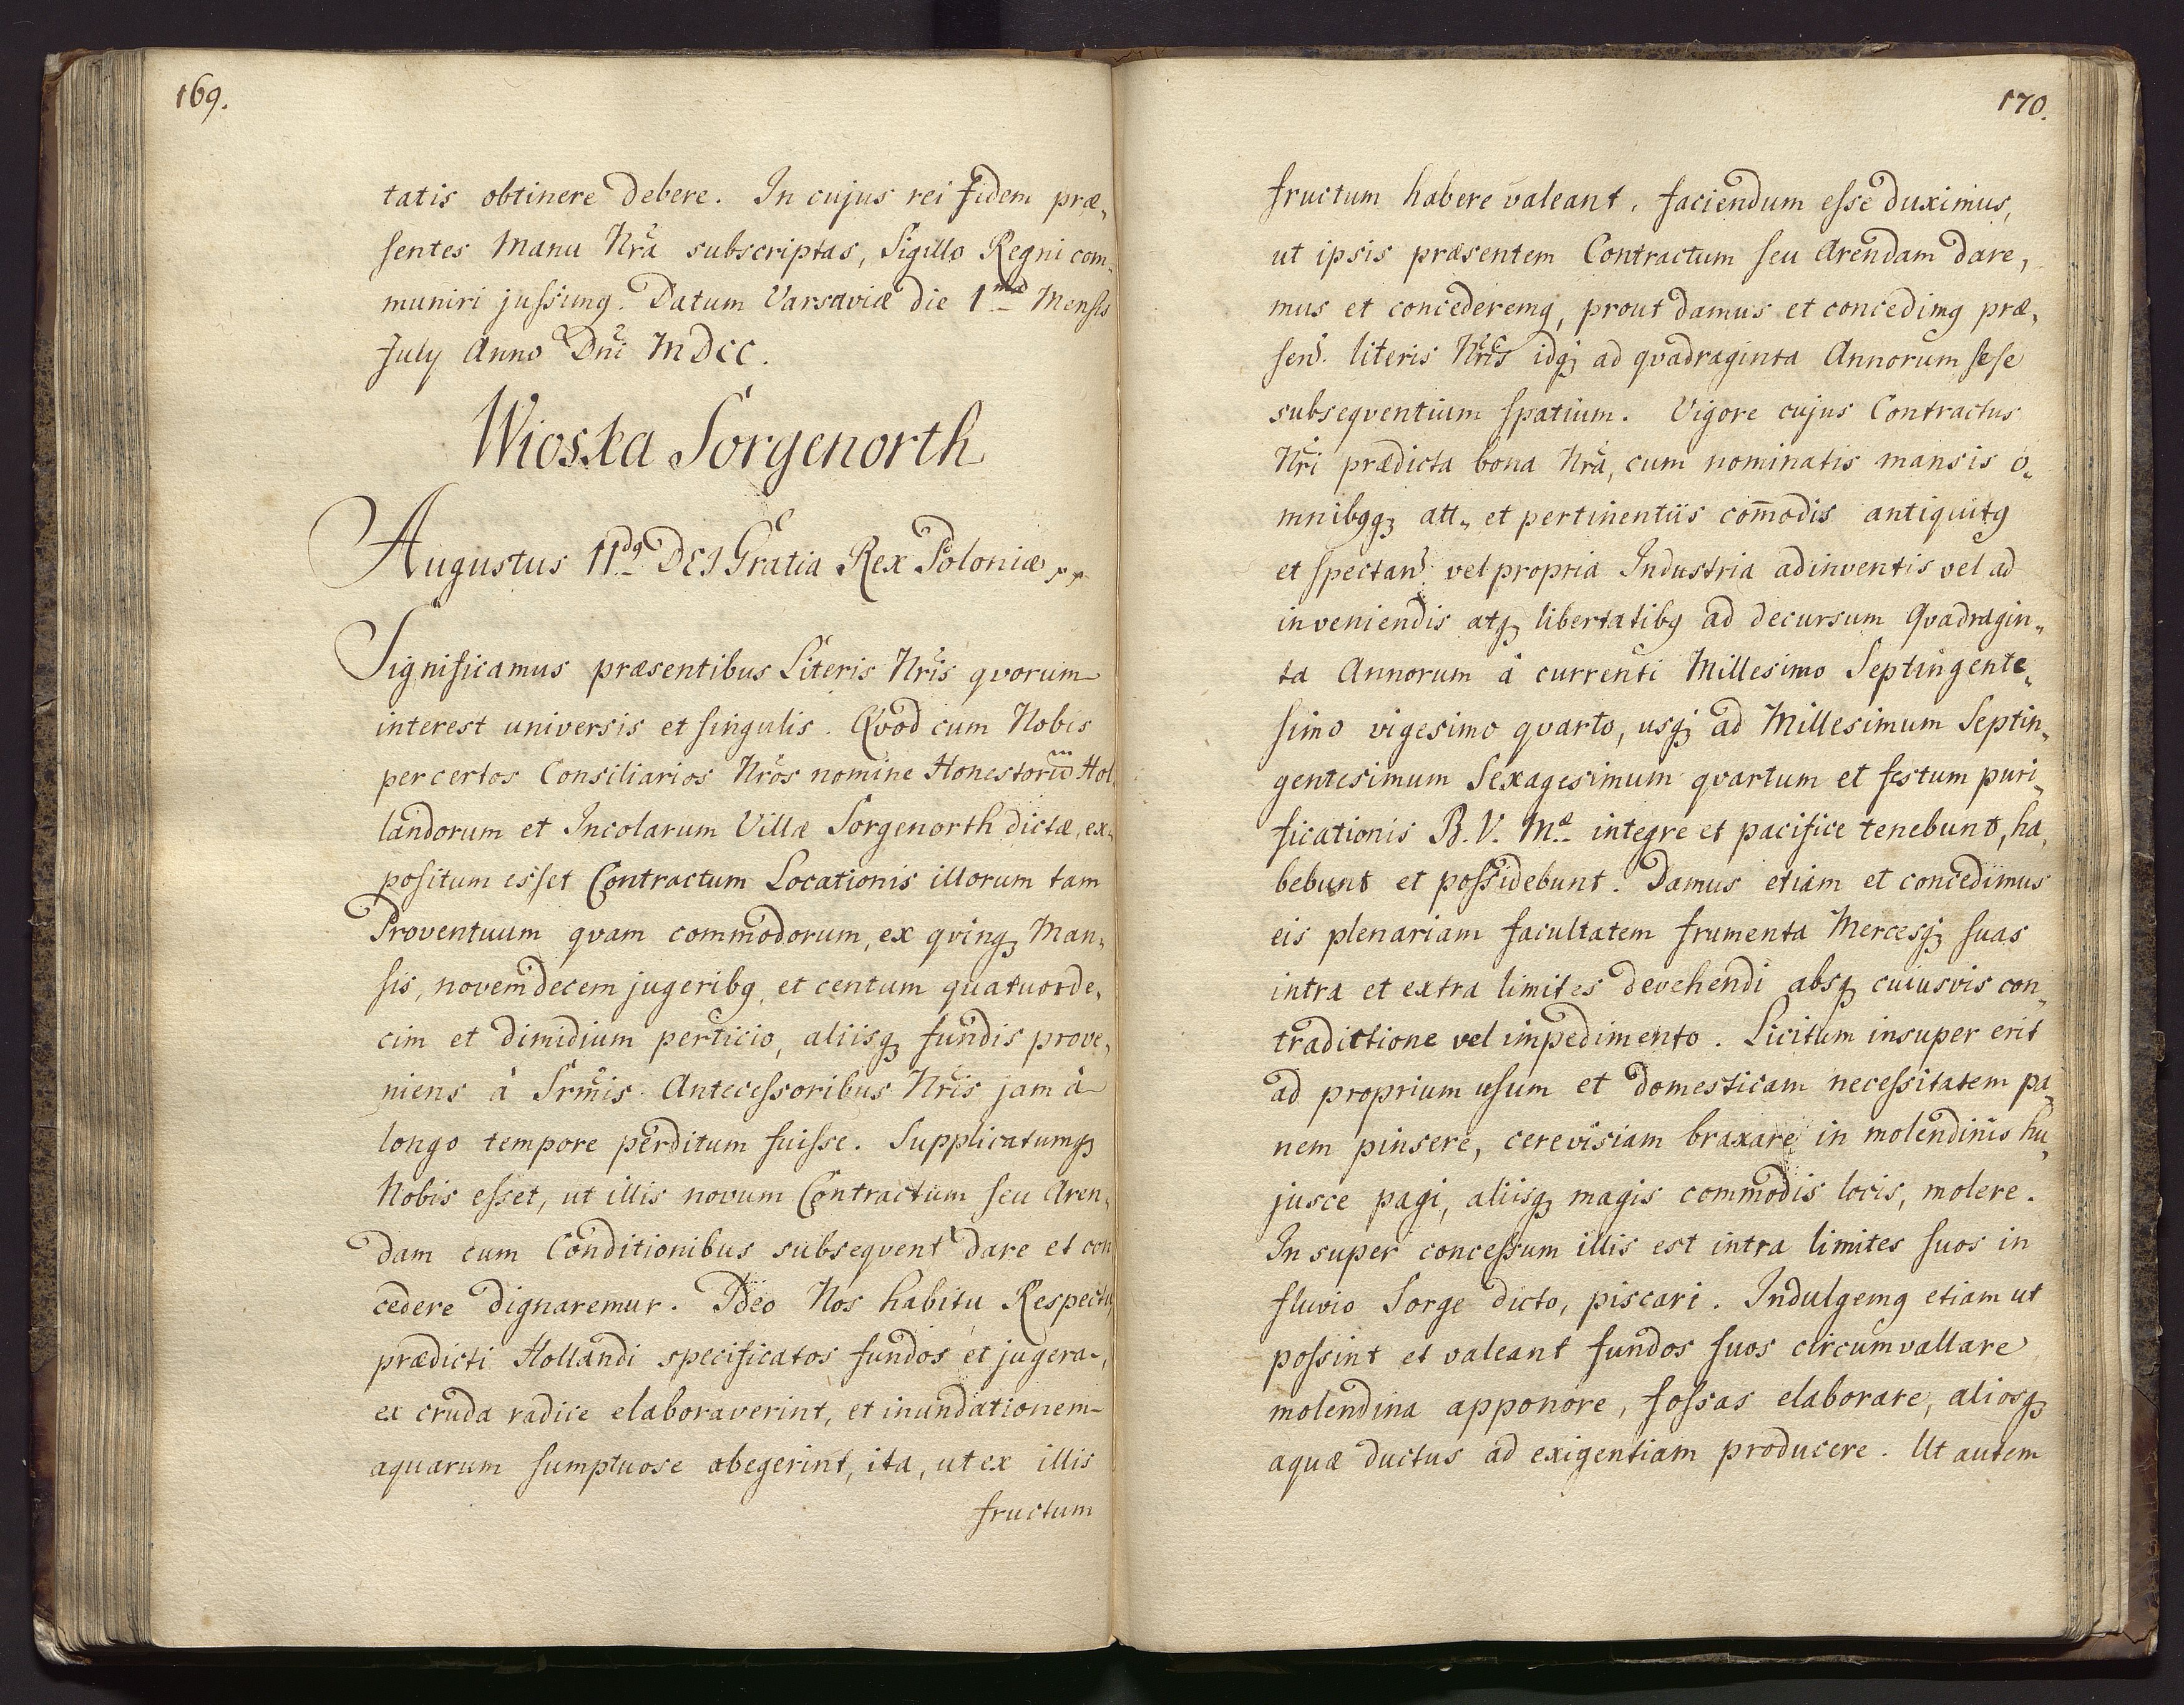 169.
tatis obtinere debere. In cujus rei fidem præ„
sentes Manu Nrã subscriptas, Sigillo Regni com„
muniri jussimq. Datum Varsaviæ die 1ma Mensis
July Anno Dni MDCC.
Wioska Sorgenorth
Augustus IIdq DEI Gratia Rex Poloniæ
Significamus præsentibus Literis Nris qvorum
interest universis et singulis. Qvod cum Nobis
per certos Consiliarios Nros nomine Honestorum Hol„
landorum et Incolarum Villæ Sorgenorth dictæ, ex„
positum esset Contractum Locationis illorum tam
Proventuum qvam commodorum, ex qvinq; Man„
sis, novemdecem jugeribq, et centum quatuorde„
cim et dimidium perticio, aliisq; fundis prove„
niens à Srmis Antecessoribus Nris jam à
longo tempore perditum fuisse. Supplicatumq;
Nobis esset, ut illis novum Contractum seu Aren„
dam cum Conditionibus subseqvent dare et con
cedere dignaremur. Ideo Nos habitu Respectu,
prædicti Hollandi specificatos fundos et jugera,
ex cruda radice elaboraverint, et inundationem
aquarum sumptuose abegerint, ita, ut ex illis
fructum
170.
fructum habere valeant, faciendum esse duximus,
ut ipsis præsentem Contractum seu Arendam dare„
mus et concederemq, prout damus et concedimq præ„
sen. literis Nris idq; ad qvadraginta Annorum sese
subseqventium spatium. Vigore cujus Contractus
Nri prædicta bona Nra, cum nominatis mansis o„
mnibqq; att„ et pertinentiis com̄odis antiquitq
et spectan. vel propria Industria adinventis vel ad
inveniendis atq; libertatibq ad decursum Qvadragin„
ta Annorum à currenti Millesimo Septingente„
simo vigesimo qvarto, usq; ad Millesimum Septin„
gentesimum Sexagesimum qvartum et festum puri„
ficationis B. V. Mæ integre et pacifice tenebunt, ha„
bebunt et possidebunt. Damus etiam et concedimus
eis plenariam facultatem frumenta Mercesq; suas
intra et extra limites devehendi absq; cuiusvis con„
tradictione vel impedimento. Licitum insuper erit
ad proprium usum et domesticam necessitatem pa„
nem pinsere, cerevisiam braxare in molendinis hu„
jusce pagi, aliisq; magis commodis locis, molere.
In super concessum illis est intra limites suos in
fluvio Sorge dicto, piscari. Indulgemq etiam ut
possint et valeant fundos suos circumvallare
molendina apponore, fossas elaborare, aliosq;
aquæ ductus ad exigentiam producere. Ut autem